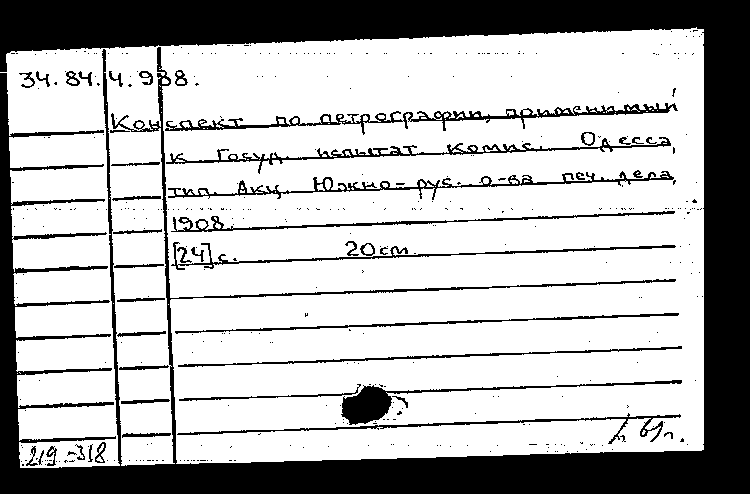 34.84.4.988.
Конспект по петрографии, применимый
к Госуд. испытат. комис. Одесса,
тип. Акц. Южно-рус. о-ва печ. дела,
1908.
[24] с. 20 см.
219-318